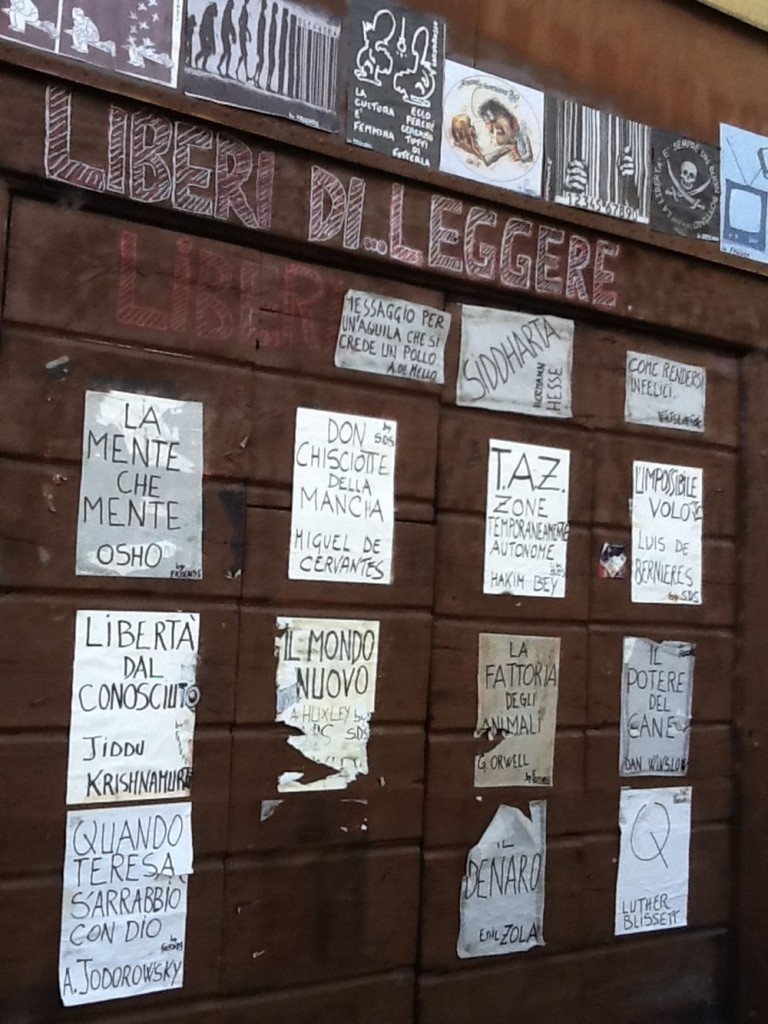 LA
CULTURA
E'
FEMMINA
ECCO
PERCHÈ
TUTTI
DI
FOTTERLA
1234567890
LA LIBERTÀ E' SEMPRE
LIBERI DI...LEGGERE
LIBERI
MESSAGGIO PER
UN'AQUILA CHE SI
CREDE UN POLLO
A. DE MELLO
SIDDHARTA
HERMANN
HESSE
COME RENDERSI
INFELICI
LA
MENTE
CHE
MENTE
OSHO
by
FRIENDS
DON by
CHISCIOTTE S.D.S.
DELLA
MANCHA
MIGUEL DE
CERVANTES
T.A.Z.
ZONE
TEMPORANEAMENTE
AUTONOME
HAKIM BEY
L'IMPOSSIBILE
VOLO
LUIS DE
BERNIERES
by S.D.S
LIBERTÀ
DAL
CONOSCIUTO
JIDDU
KRISHNAMURTI
IL MONDO
NUOVO
A HUXLEY by
S.D.S
LA
FATTORIA
DEGLI
ANIMALI
G. ORWELL
IL
POTERE
DEL
CANE
DAN WINSLOW
QUANDO
TERESA
S'ARRABBIÒ
CON DIO
A. JODOROWSKY
IL
DENARO
EMIL ZOLA
Q
LUTHER
BLISSETT